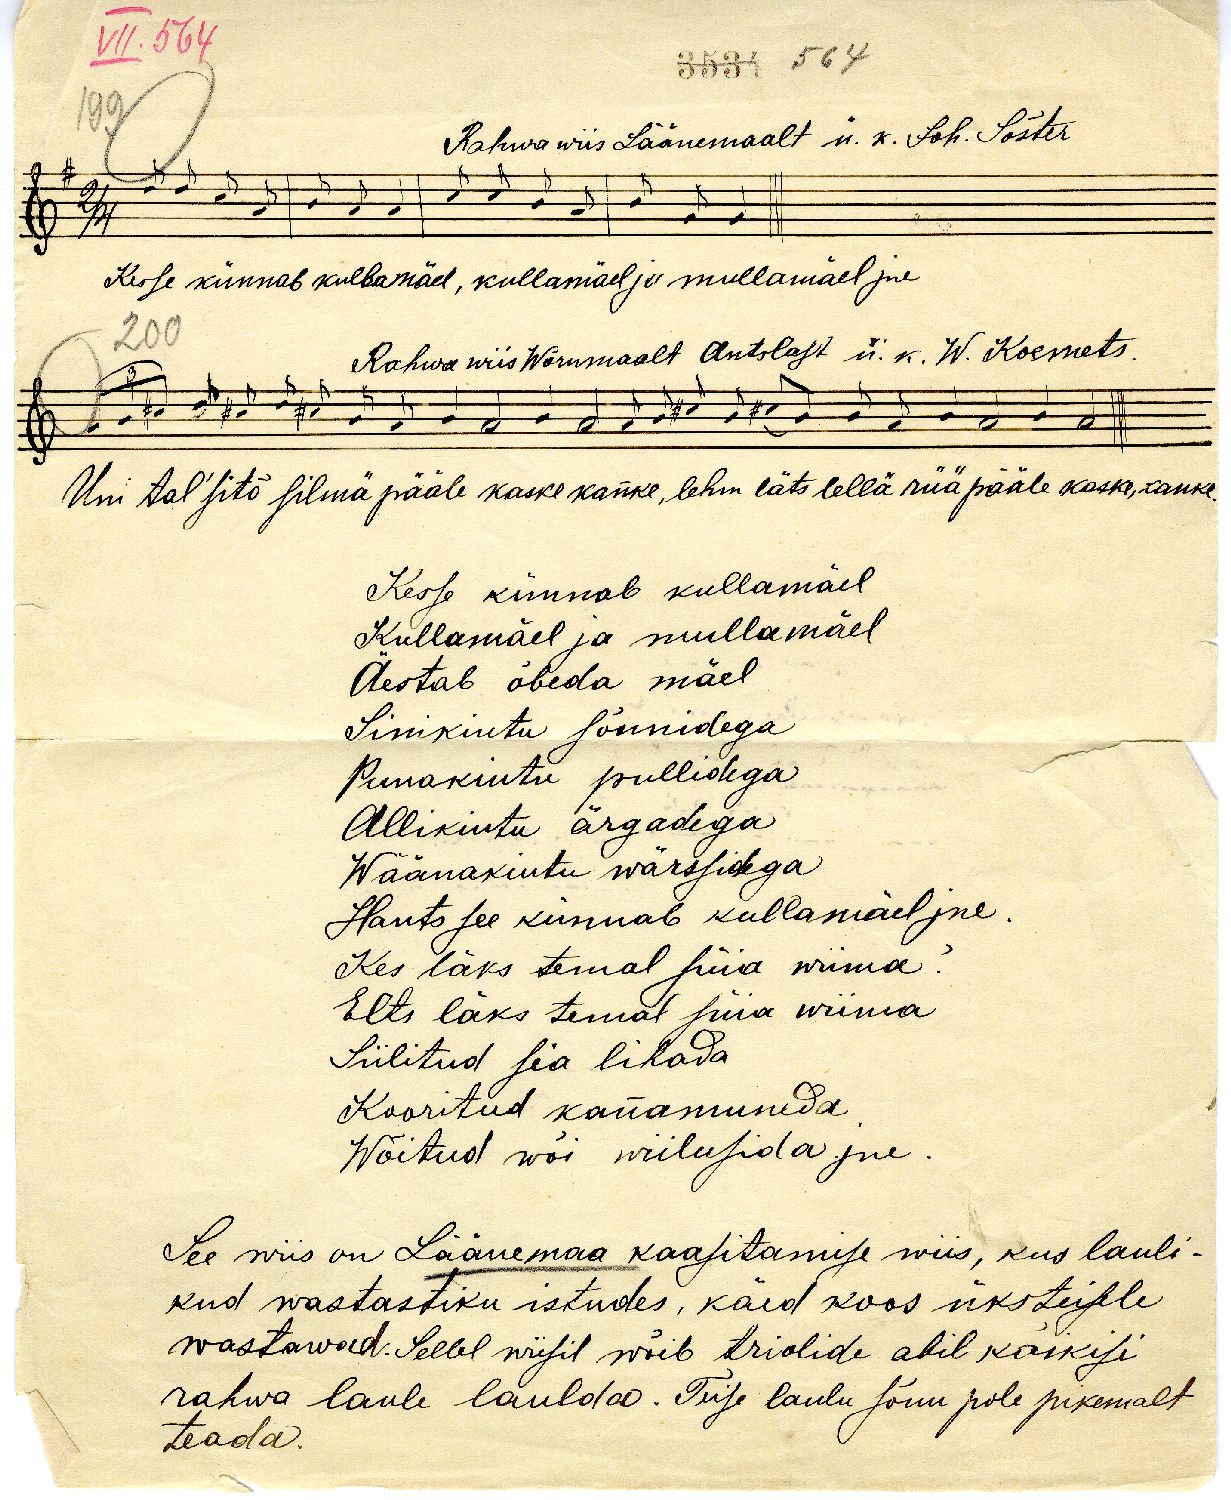 VII. 564
3531 564
199
Rahwa wiis Läänemaalt ü. k. Joh. Söster
2/4
Kesse künnab kullamäel, kullamäel ja mullamäel jne
200
Rahwa wiis Wõrumaalt Antslast ü. k. W. Koemets.
3
Uni tal' sitõ silmä pääle kaske kanke, lehm läts lellä rüä pääle kaske, kanke.
Kesse künnab kullamäel
Kullamäel ja mullamäel
Äestab õbeda mäel
Sinikintu sõnnidega
Punakintu pullidega
Allikintu ärgadega
Wäänakintu wärssidega
Hants see künnab kullamäel jne.
Kes läks temal süia wiima?
Elts läks temal süia wiima
Siilitud sia lihada
Kooritud kanamuneda
Wõitud wõi wiilusida jne.
See wiis on Läänemaa kaasitamise wiis, kus lauli-
kud wastastiku istudes, käed koos üksteisele
wastawad. Sellel wiisil wõib triolide abil kõikisi
rahwa laule laulda. Teise laulu sõnu pole pikemalt
teada.